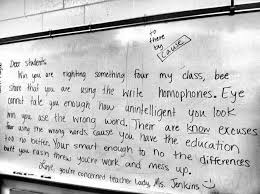 to
there
by
Cause
Dear Students,
Win you are righting something four my class, bee
shore that you are using the write homophones. Eye
cannot tale you enough how unintelligent you look
win you use the wrong word. Their are know excuses
for using the wrong words cause you have the education
too no better. Your smart enough to no the differences
butt you threw you're work and mess up.
Love, you're concerned teacher Lady, Ms. Jenkins